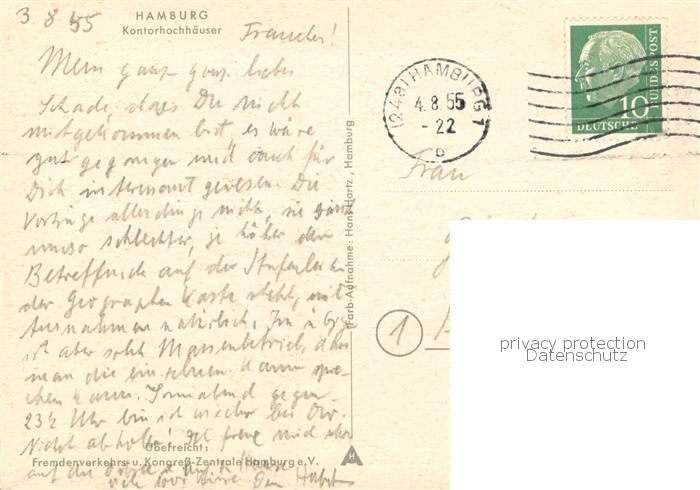 3 8.55
HAMBURG
Kontorhochhäuser
Mein ganz ganz liebes
Schade, dass Du nicht
mitgekommen bist, es wäre
gut gegangen und auch für
Dich interessant gewesen. Die
Vorträge allerdings nicht, sie sind
umso schlechter, je höher der
Betreffende auf der Stufenleiter
der Geographen Kaste steht, mit
Ausnahmen natürlich. Im
ist aber solch Massenbetrieb, dass
man die einzelnen kaum spre-
chen kann. Sonnabend gegen
23½ Uhr bin ich wieder bei Dir.
Nicht abholen! Ich freue mich schon
auf die
viele 1000 Küsse Dein
Überreicht:
Fremdenverkehrs- u. Kongreß-Zentrale Hamburg e. V.
Farb-Aufnahme: Hans Hartz, Hamburg
(24a) HAMBURG 1
4.8.55
-22
b
10
DEUTSCHE
BUNDESPOST
Frau
1
privacy protection
Datenschutz